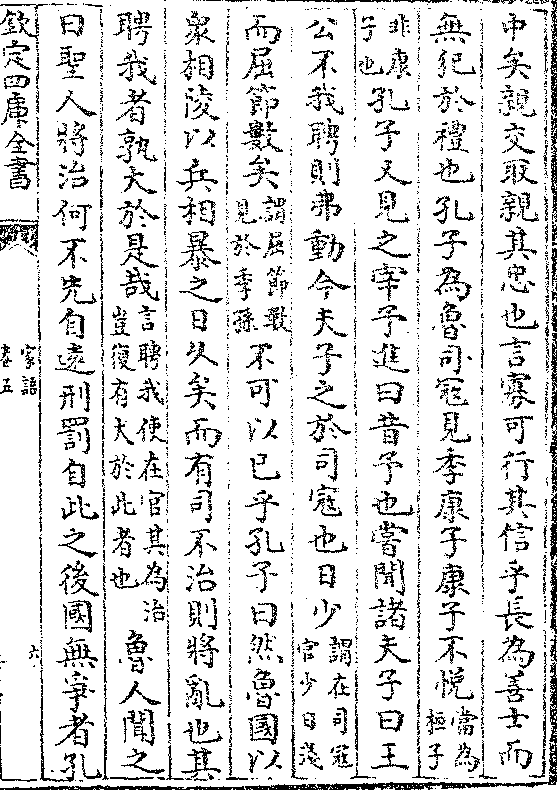 中矣親交取親其忠也言寡可行其信乎長為善士而
無犯於禮也孔子為魯司冦見季康子康子不悦當為桓子
非康子也孔子又見之宰予進曰昔予也嘗聞諸夫子曰王
公不我聘則弗動今夫子之於司冦也日少謂在司冦官少日淺
而屈節數矣謂屈節數見於季孫不可以已乎孔子曰然魯國以
衆相陵以兵相暴之日乆矣而有司不治則將亂也其
聘我者孰大於是哉言聘我使在官其為治豈復有大於此者也魯人聞之
曰聖人將治何不先自逺刑罰自此之後國無爭者孔
欽定四庫全書
家語
卷五
六